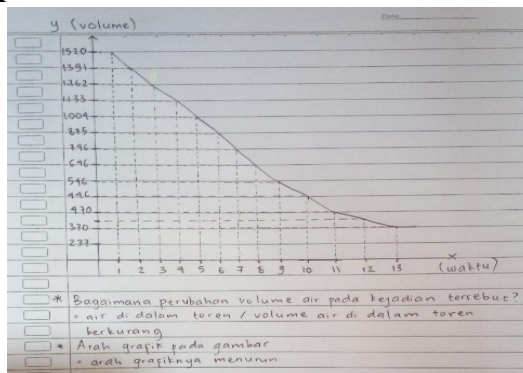 Date:
y (volume)
1520
1391
1262
1133
1004
875
746
646
546
446
470
370
237
1 2 3 4 5 6 7 8 9 10 11 12 13
x
(waktu)
* Bagaimana perubahan volume air pada kejadian tersebut?
= air di dalam toren / volume air di dalam toren
berkurang
* Arah grafik pada gambar
= arah grafiknya menurun